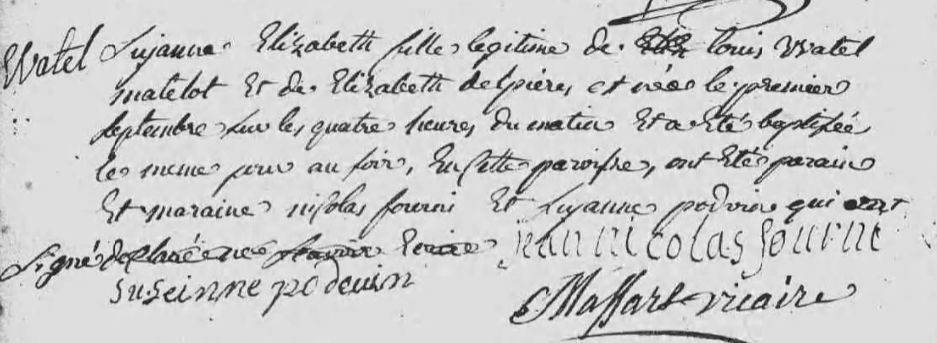 Watel Susanne Elizabeth fille legitime de Louis Watel
matelot Et de Elizabeth delpierre est née le premier
septembre sur les quatre heures du matin Et a Eté baptisée
le meme jour au soir, En cette paroisse, ont Eté parain
Et maraine nicolas fourni Et Susanne podvin qui ont
signé
jean nicolas fourni
suseinne podeuin
Massart vicaire